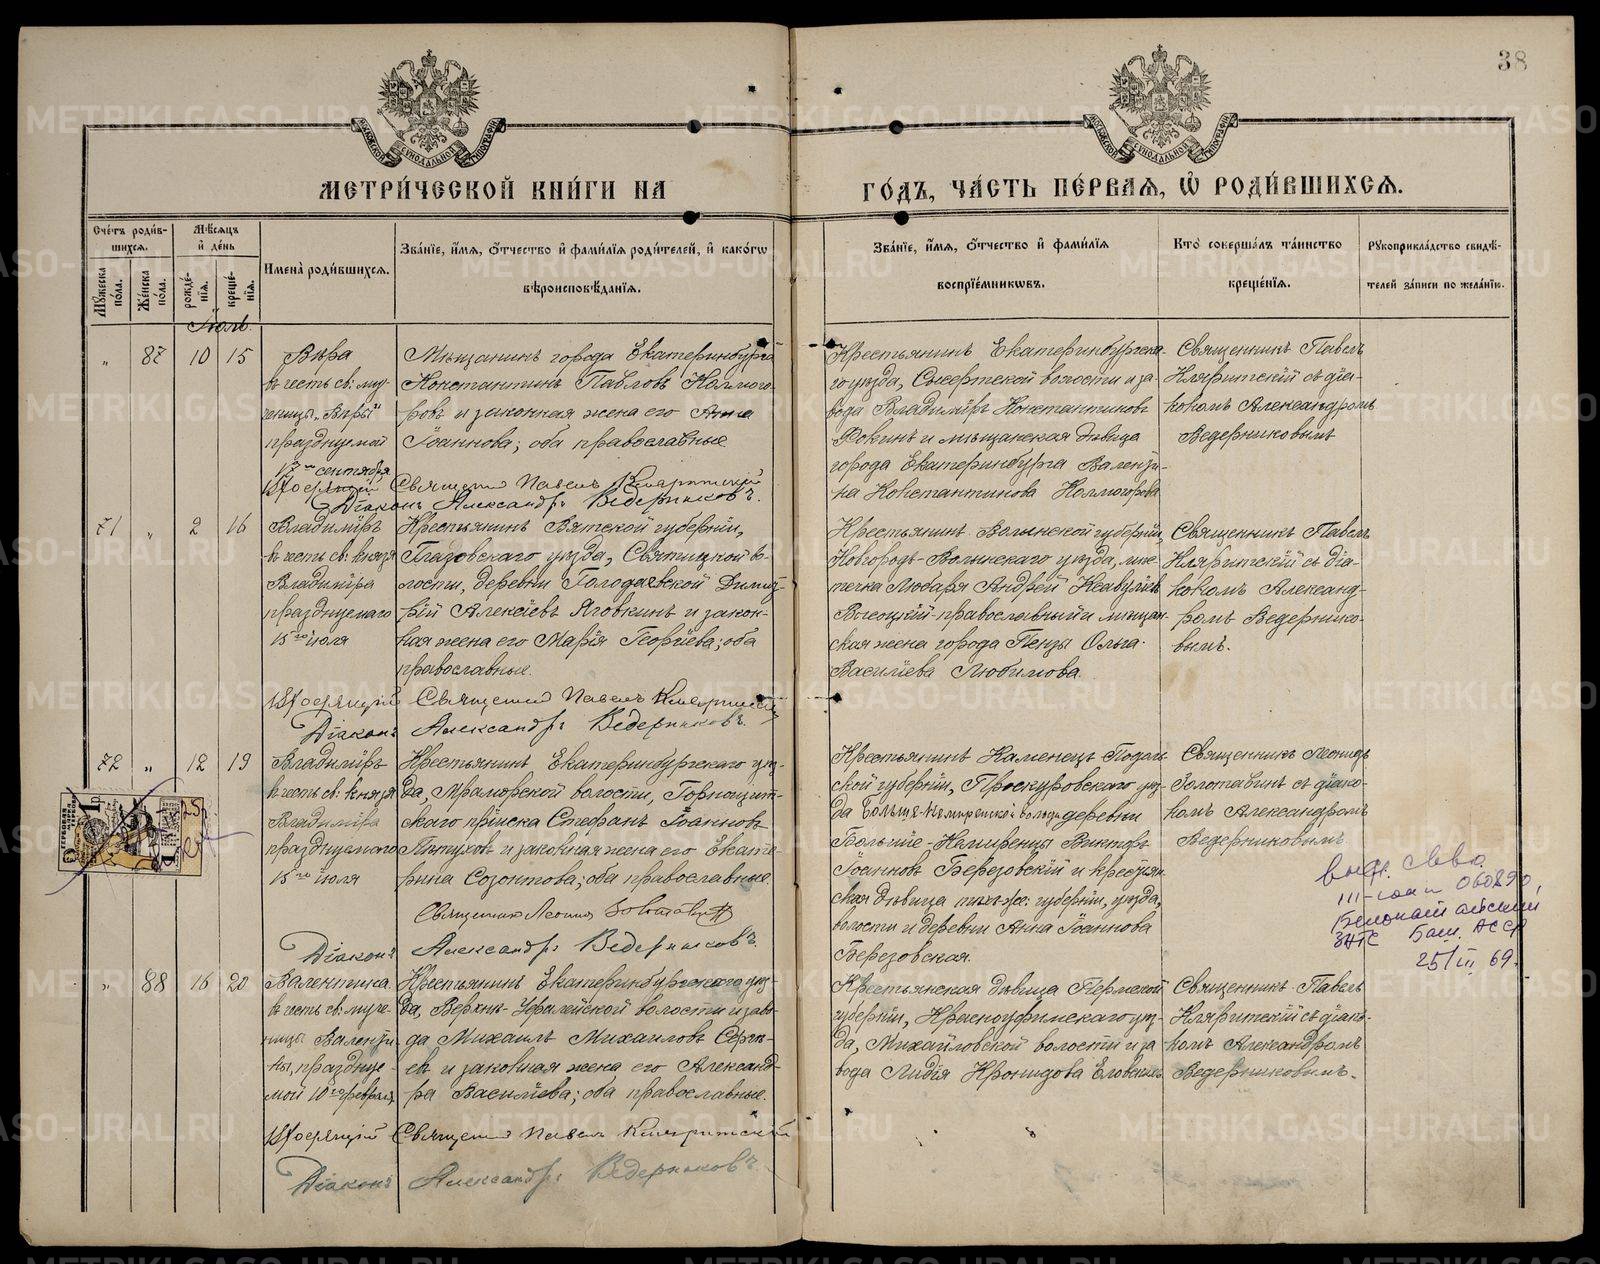 38
МЕТРИ́ЧЕСКОЙ КНИ́ГИ НА
ГО́ДЪ, ЧА́СТЬ ПЕ́РВАѦ, Ѡ҆ РОДИ́ВШИХСѦ.
Сче́тъ роди́в-
шихсѧ.
Мꙋ́жеска по́ла.
Же́нска по́ла.
Мѣ́сѧцъ и҆ де́нь
рожде́-
нїѧ.
креще́-
нїѧ.
Имена̀ роди́вшихсѧ.
Зва́нїе, и҆́мѧ, о҆́тчество и҆ фамı́лїѧ роди́телей, и҆ како́гѡ
вѣроисповѣ́данїѧ.
Зва́нїе, и҆́мѧ, о҆́тчество и҆ фамı́лїѧ
воспрїе́мникѡвъ.
Кто̀ соверша́лъ та́инство
креще́нїѧ.
Рꙋкоприкла́дство свидѣ́-
телей за́писи по жела́нїю.
Іюль.
„ 87 10 15
Вѣра
въ честь св: му-
ченицы „Вѣры“
празднуемой
17го сентября
Мѣщанинъ города Екатеринбурга
Константинъ Павловъ Колмого-
ровъ и законная жена его Анна
Іоаннова; оба православные
Крестьянинъ Екатеринбургска-
го уѣзда, Сысертской волости и за-
вода Владиміръ Константиновъ
Фокинъ и мѣщанская дѣвица
города Екатеринбурга Валенти-
на Константинова Колмогорова
Священникъ Павелъ
съ діа-
кономъ Александромъ
Ведерниковымъ
Священникъ Павелъ
Діаконъ Александръ Ведерниковъ.
71 „ 2 16
Владиміръ
въ честь св: князя
Владиміра
празднуемаго
15го іюля
Крестьянинъ Вятской губерніи,
Глазовскаго уѣзда, Святицкой во-
лости, деревни Голодаевской Димит-
рій Алексіевъ Яговкинъ и закон-
ная жена его Марія Георгіева; оба
православные.
Крестьянинъ Волынской губерніи,
Новоградъ-Волынскаго уѣзда, мѣс-
течка Любаря Андрей
Высоцкій-православный и мѣщан-
ская жена города Пензы Ольга
Василіева Любимова.
Священникъ Павелъ
съ діа-
кономъ Александ-
ромъ Ведернико-
вымъ.
Священникъ Павелъ
Діаконъ Александръ Ведерниковъ.
72 „ 12 19
Владиміръ
въ честь св: князя
Владиміра
празднуемаго
15го іюля
Крестьянинъ Екатеринбургскаго уѣз-
да, Мраморской волости, Горнощит-
скаго пріиска Стефанъ Іоанновъ
и законная жена его Екате-
рина Созонтова; оба православные.
Крестьянинъ Каменецъ-Подоль-
ской губерніи, Проскуровскаго уѣз-
да деревни
Іоанновъ Березовскій и крестьян-
ская дѣвица тѣхъ-же: губерніи, уѣзда,
волости и деревни Анна Іоаннова
Березовская.
Священникъ Леонидъ
Золотавинъ съ діако-
номъ Александромъ
Ведерниковымъ.
Священникъ Леонидъ Золотавинъ
Діаконъ Александръ Ведерниковъ.
выд. св-во
060890,
ЗАГС Баш. АССР
25/III 69.
„ 88 16 20
Валентина
въ честь св: муче-
ницы Валенти-
ны, празднуе-
мой 10го февраля
Крестьянинъ Екатеринбургскаго уѣз-
да, Верхне-Уфалейской волости и заво-
да Михаилъ Михаиловъ Серге-
евъ и законная жена его Александ-
ра Василіева; оба православные.
Крестьянская дѣвица Пермской
губерніи, Красноуфимскаго уѣз-
да, Михайловской волости и за-
вода Лидія Кронидова
Священникъ Павелъ
съ діако-
номъ Александромъ
Ведерниковымъ.
Священникъ Павелъ
Діаконъ Александръ Ведерниковъ.
METRIKI.GASO-URAL.RU